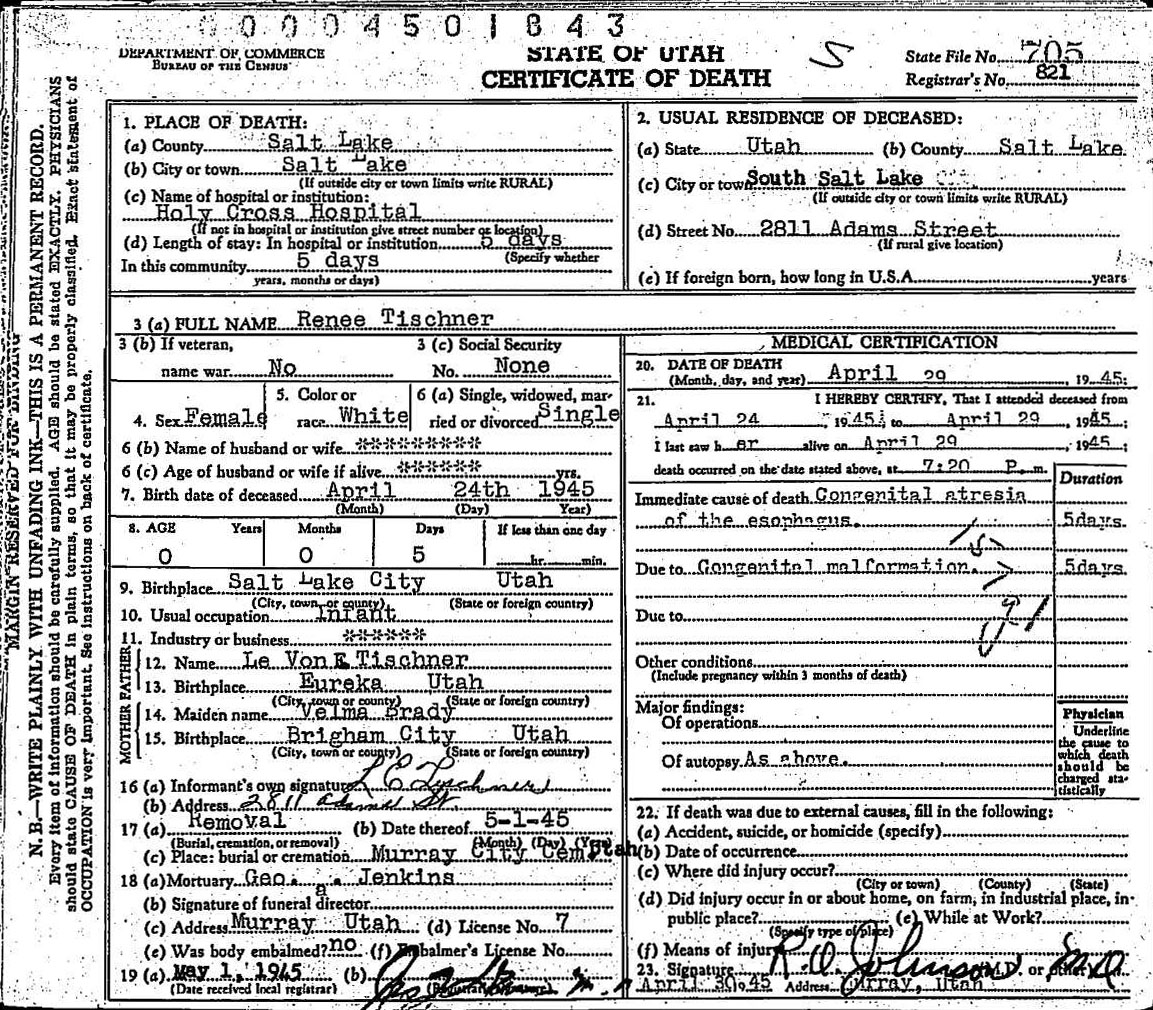 0 0 0 4 5 0 1 8 4 3
DEPARTMENT OF COMMERCE
BUREAU OF THE CENSUS
STATE OF UTAH
CERTIFICATE OF DEATH
5
State File No. 705
Registrar's No. 821
MARGIN RESERVED FOR BINDING
N. B.—WRITE PLAINLY WITH UNFADING INK—THIS IS A PERMANENT RECORD.
Every item of information should be carefully supplied. AGE should be stated EXACTLY. PHYSICIANS
should state CAUSE OF DEATH in plain terms, so that it may be properly classified. Exact statement of
OCCUPATION is very important. See instructions on back of certificate.
1. PLACE OF DEATH:
(a) County Salt Lake
(b) City or town Salt Lake
(If outside city or town limits write RURAL)
(c) Name of hospital or institution:
Holy Cross Hospital
(If not in hospital or institution give street number or location)
(d) Length of stay: In hospital or institution 5 days
(Specify whether
In this community 5 days
years, months or days)
2. USUAL RESIDENCE OF DECEASED:
(a) State Utah (b) County Salt Lake
(c) City or town South Salt Lake
(If outside city or town limits write RURAL)
(d) Street No. 2811 Adams Street
(If rural give location)
(e) If foreign born, how long in U.S.A. years
3 (a) FULL NAME Renee Tischner
3 (b) If veteran,
name war No
3 (c) Social Security
No. None
4. Sex Female
5. Color or
race White
6 (a) Single, widowed, mar-
ried or divorced Single
6 (b) Name of husband or wife *********
6 (c) Age of husband or wife if alive ****** yrs.
7. Birth date of deceased April 24th 1945
(Month) (Day) Year)
8. AGE Years Months Days If less than one day
0 0 5 hr. min.
9. Birthplace Salt Lake City Utah
(City, town, or county) (State or foreign country)
10. Usual occupation Infant
11. Industry or business ******
FATHER
12. Name Le Von E Tischner
13. Birthplace Eureka Utah
(City, town or county) (State or foreign country)
MOTHER
14. Maiden name Velma Brady
15. Birthplace Brigham City Utah
(City, town or county) (State or foreign country)
16 (a) Informant's own signature L E Tischner
(b) Address 2811 Adams St
17 (a) Removal (b) Date thereof 5-1-45
(Burial, cremation, or removal) (Month) (Day) (Year)
(c) Place: burial or cremation Murray City Cem. Utah
18 (a) Mortuary Geo. a. Jenkins
(b) Signature of funeral director
(c) Address Murray Utah (d) License No. 7
(e) Was body embalmed? no (f) Embalmer's License No.
19 (a) May 1, 1945 (b)
(Date received local registrar)
MEDICAL CERTIFICATION
20. DATE OF DEATH
(Month, day, and year) April 29 1945:
21. I HEREBY CERTIFY, That I attended deceased from
April 24 1945; to April 29, 1945;
I last saw her alive on April 29, 1945;
death occurred on the date stated above, at 7:20 P. m.
Duration
Immediate cause of death Congenital atresia
of the esophagus. 5days
Due to Congenital malformation. 5days
Due to
Other conditions
(Include pregnancy within 3 months of death)
Major findings:
Of operations
Of autopsy As above.
Physician
Underline
the cause to
which death
should be
charged sta-
tistically
22. If death was due to external causes, fill in the following:
(a) Accident, suicide, or homicide (specify)
(b) Date of occurrence
(c) Where did injury occur?
(City or town) (County) (State)
(d) Did injury occur in or about home, on farm, in industrial place, in
public place? (e) While at Work?
(Specify type of place)
(f) Means of injury
23. Signature R. O. Johnson, M D or other)
April 30, 45 Address Murray, Utah